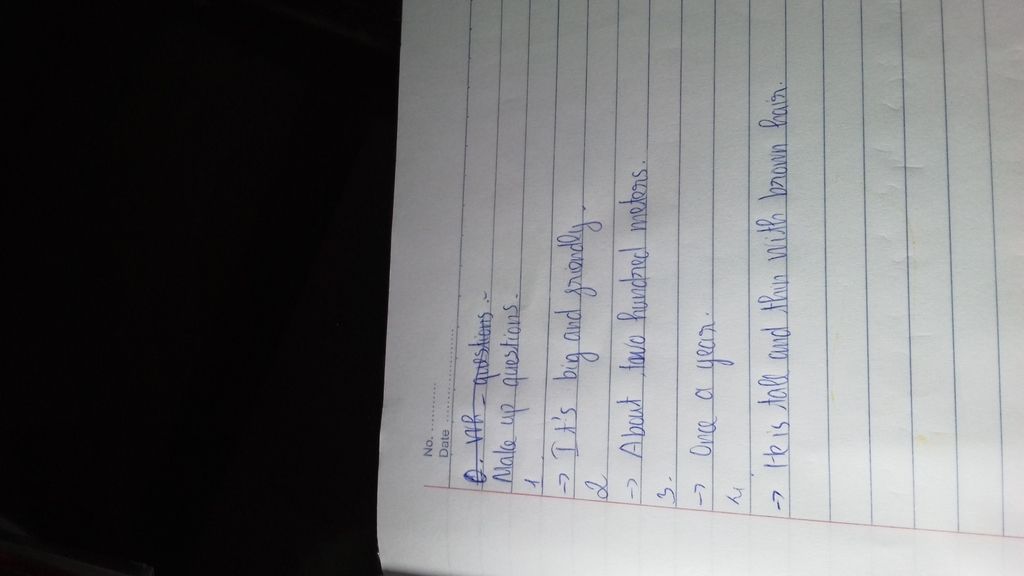 No. ............
Date ........................
Q. WH - questions :-
Make up questions.
1
→ It's big and friendly.
2
→ About two hundred meters.
3.
→ Once a year.
4
→ He is tall and thin with brown hair.